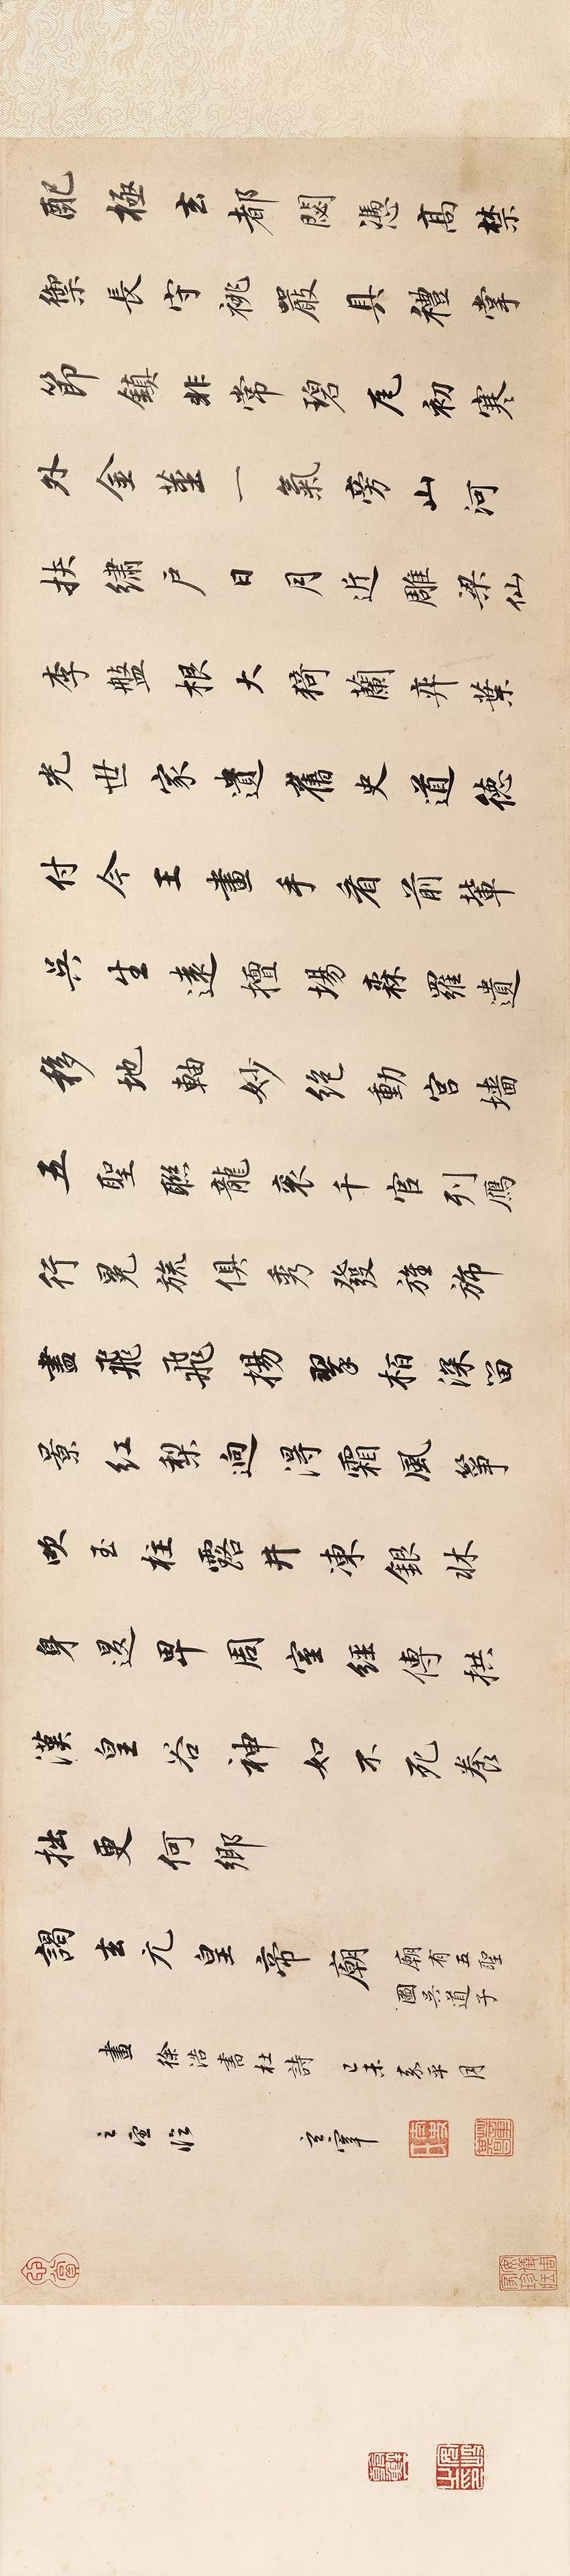 配極玄都閟憑高禁
禦長守祧嚴具禮掌
節鎮非常碧瓦初寒
外金莖一氣旁山河
扶繡戶日月近雕梁仙
李盤根大猗蘭弈葉
光世家遺舊史道德
付今王畫手看前輩
吳生遠擅場森羅遺
移地軸妙絕動宮墻
五聖聯龍袞千官列鴈
行冕旒俱秀發旌旆
盡飛飛揚翠柏深留
景紅梨迥得霜風箏
吹玉柱露井凍銀牀
身退卑周室經傳拱
漢皇谷神如不死養
拙更何鄉
謁玄元皇帝廟 廟有五聖
圖吳道子
畫 徐浩書杜詩 己未嘉平月
之望臨 玄宰